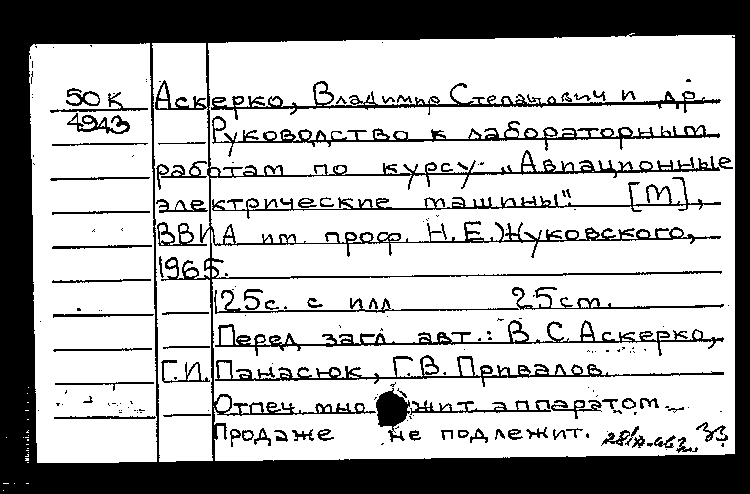 50К Аскерко, Владимир Степанович и др.
4943 Руководство к лабораторным
работам по курсу: „Авиационные
электрические машины". [М.],
ВВИА им. проф. Н.Е.Жуковского,
1965.
125с. с илл 25см.
Перед загл. авт.: В.С.Аскерко,
Г.И. Панасюк, Г.В. Привалов.
Отпеч. множит. аппаратом.
Продаже не подлежит.